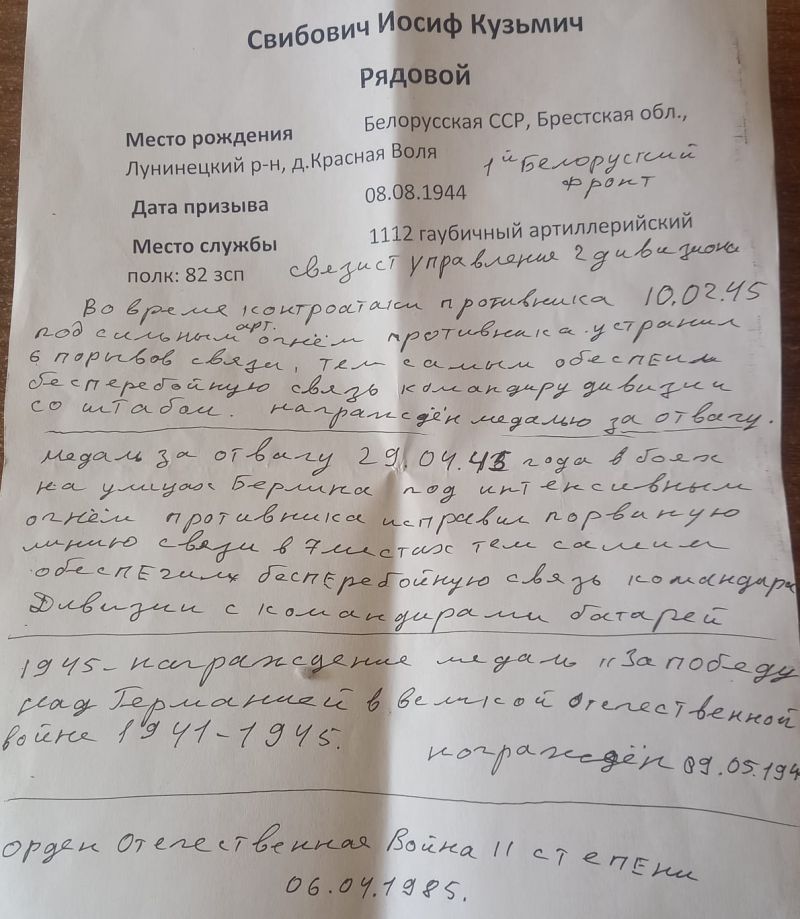 Свибович Иосиф Кузьмич
Рядовой
Место рождения Белорусская ССР, Брестская обл.,
Лунинецкий р-н, д.Красная Воля
1й Белоруский
фронт
Дата призыва 08.08.1944
Место службы 1112 гаубичный артиллерийский
полк: 82 зсп связист управления 2 дивизиона
Во время контроатаки противника 10.02.45
под сильным арт. огнём противника устранил
6 порывов связи, тем самым обеспеил
бесперебойную связь командиру дивизии
со штабом. награждён медалью за отвагу.
медаль за отвагу 29.04.45 года в боях
на улицах Берлина под интенсивным
огнём противника исправил порваную
линию связи в 7 местах тем самим
обеспечил бесперебойную связь командира
Дивизии с командирами батарей
1945- награждение медаль "За победу
над Германией в великой отечественной
войне 1941-1945.
награждён 09.05.194
орден Отечественная Война II степени
06.04.1985.